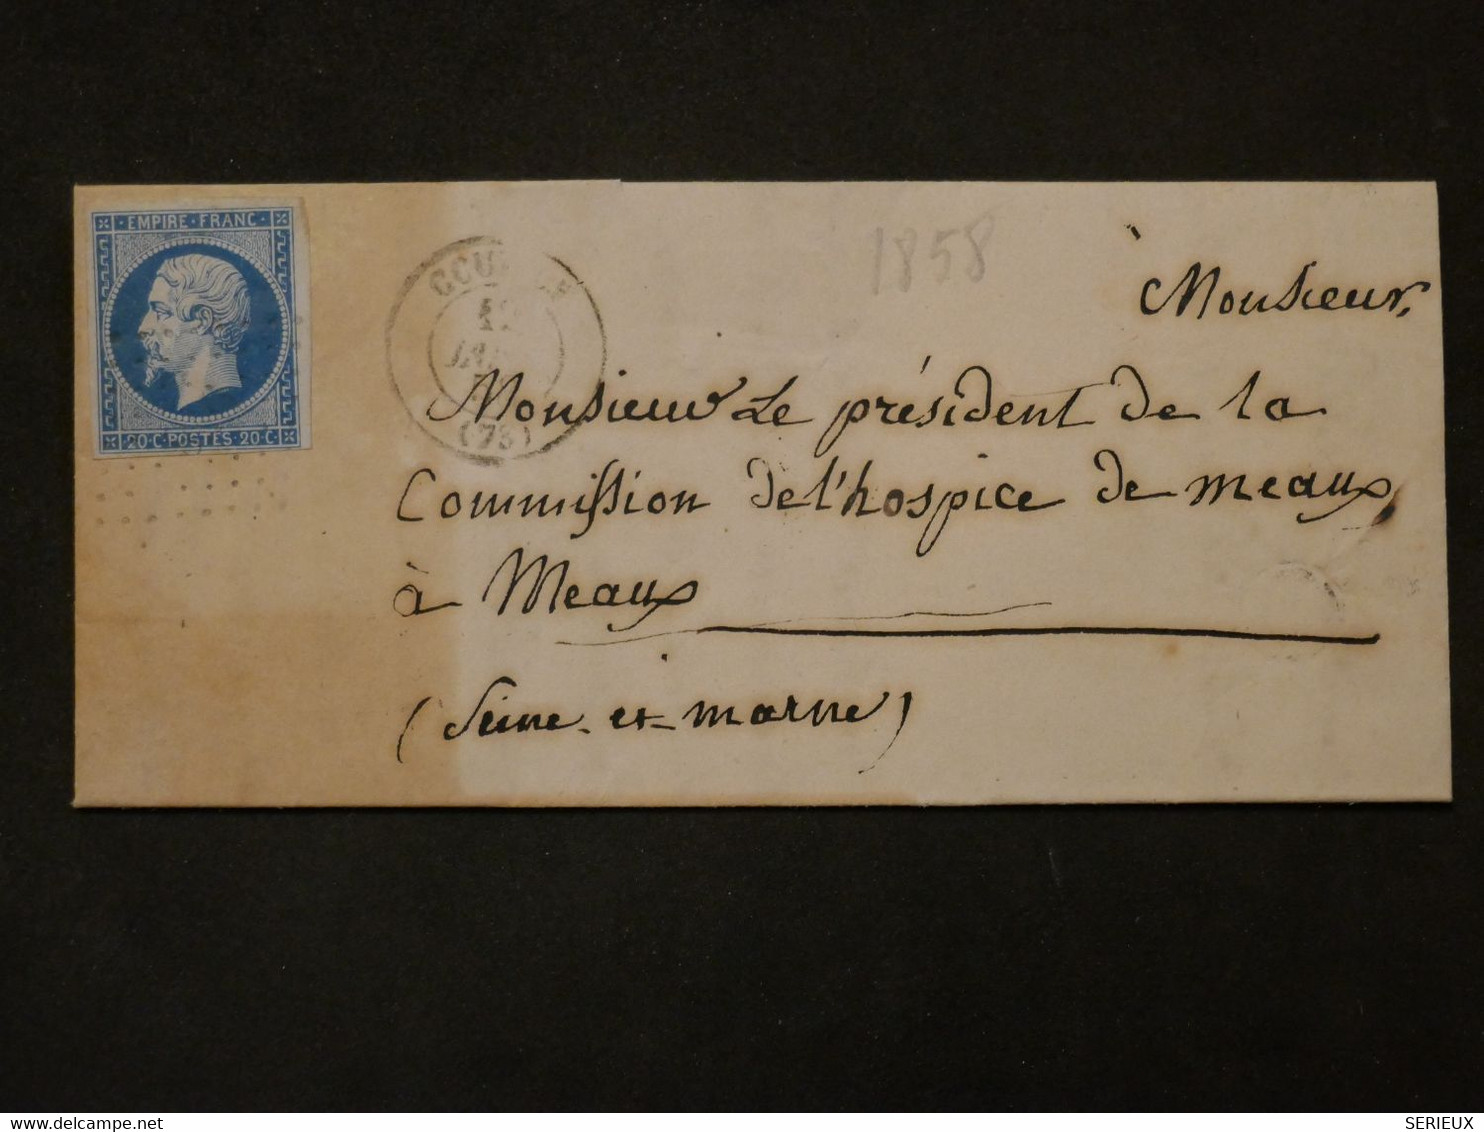 · EMPIRE · FRANC ·
20·C·POSTES·20·C·
(73)
1858
Monsieur,
Monsieur Le président de la
Commission de l'hospice de meaux
à Meaux
(Seine et marne)
SERIEUX